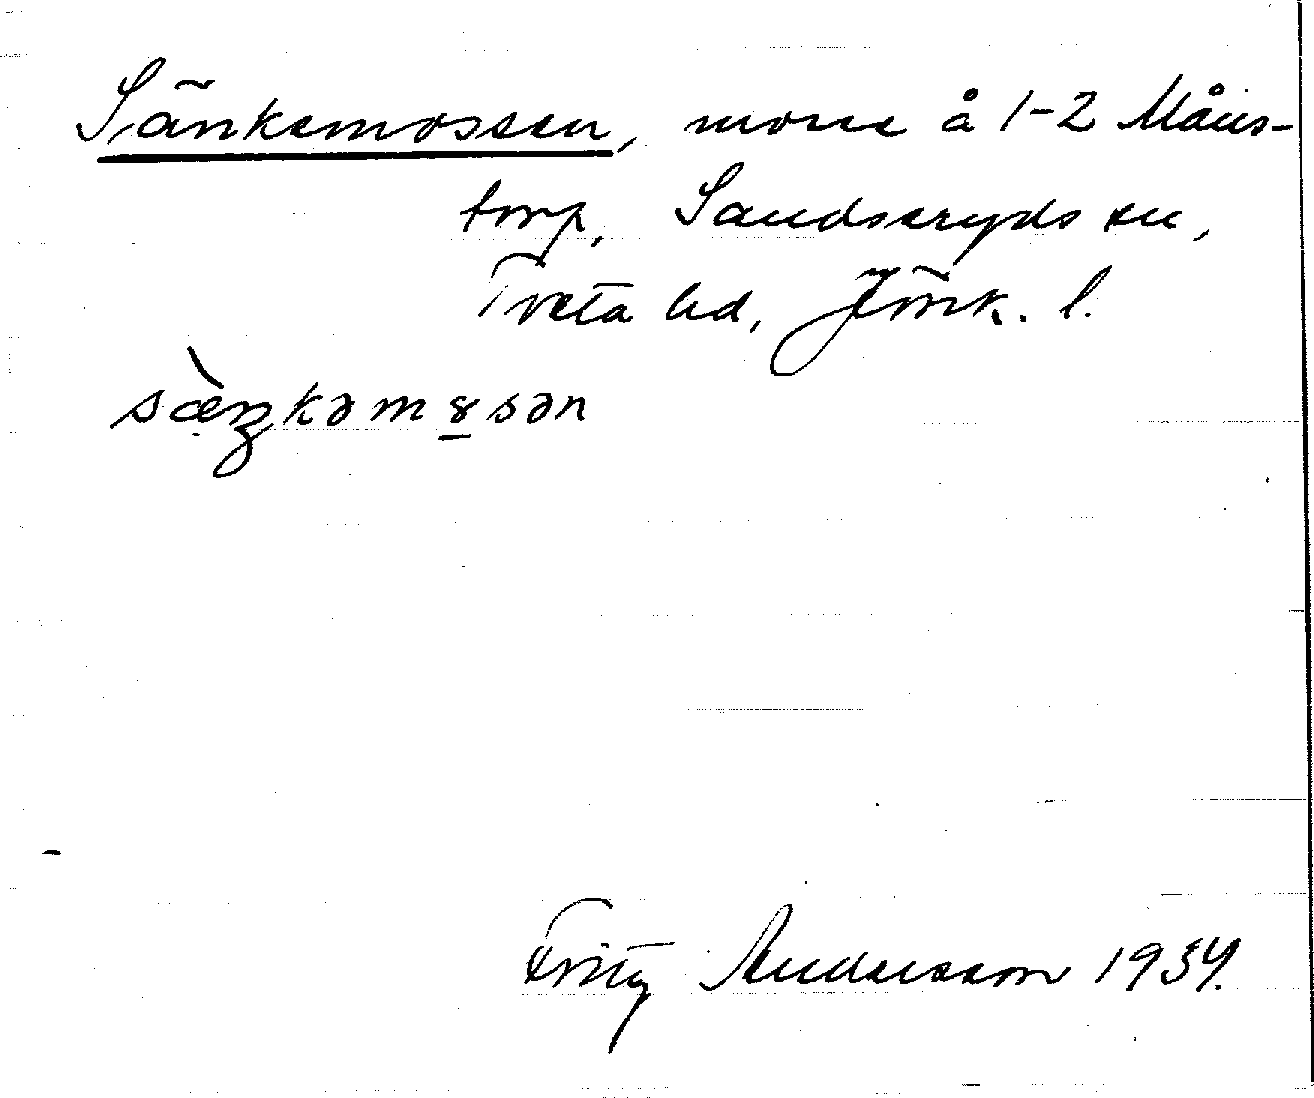 Sänkemossen, mosse å 1-2 Måns-
torp, Sandseryds sn,
Tveta hd, Jönk. l.
sæ̀ŋkəmɤ̲sən
Fritz Andersson 1934.